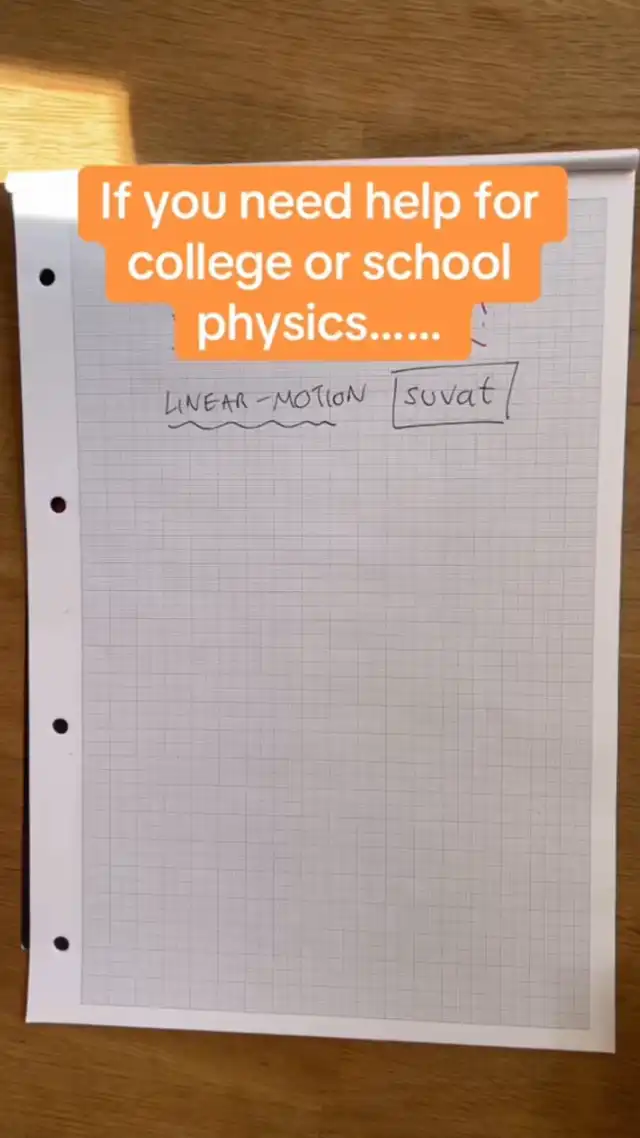 If you need help for
college or school
physics......
LINEAR-MOTION suvat